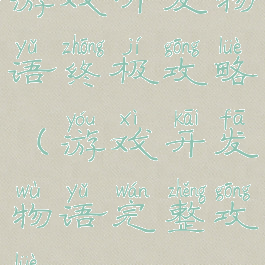 游戏开发物
yǔ zhōng jí gōng lüè
语终极攻略
yóu xì kāi fā
（游戏开发
wù yǔ wán zhěng gōng
物语完整攻
lüè